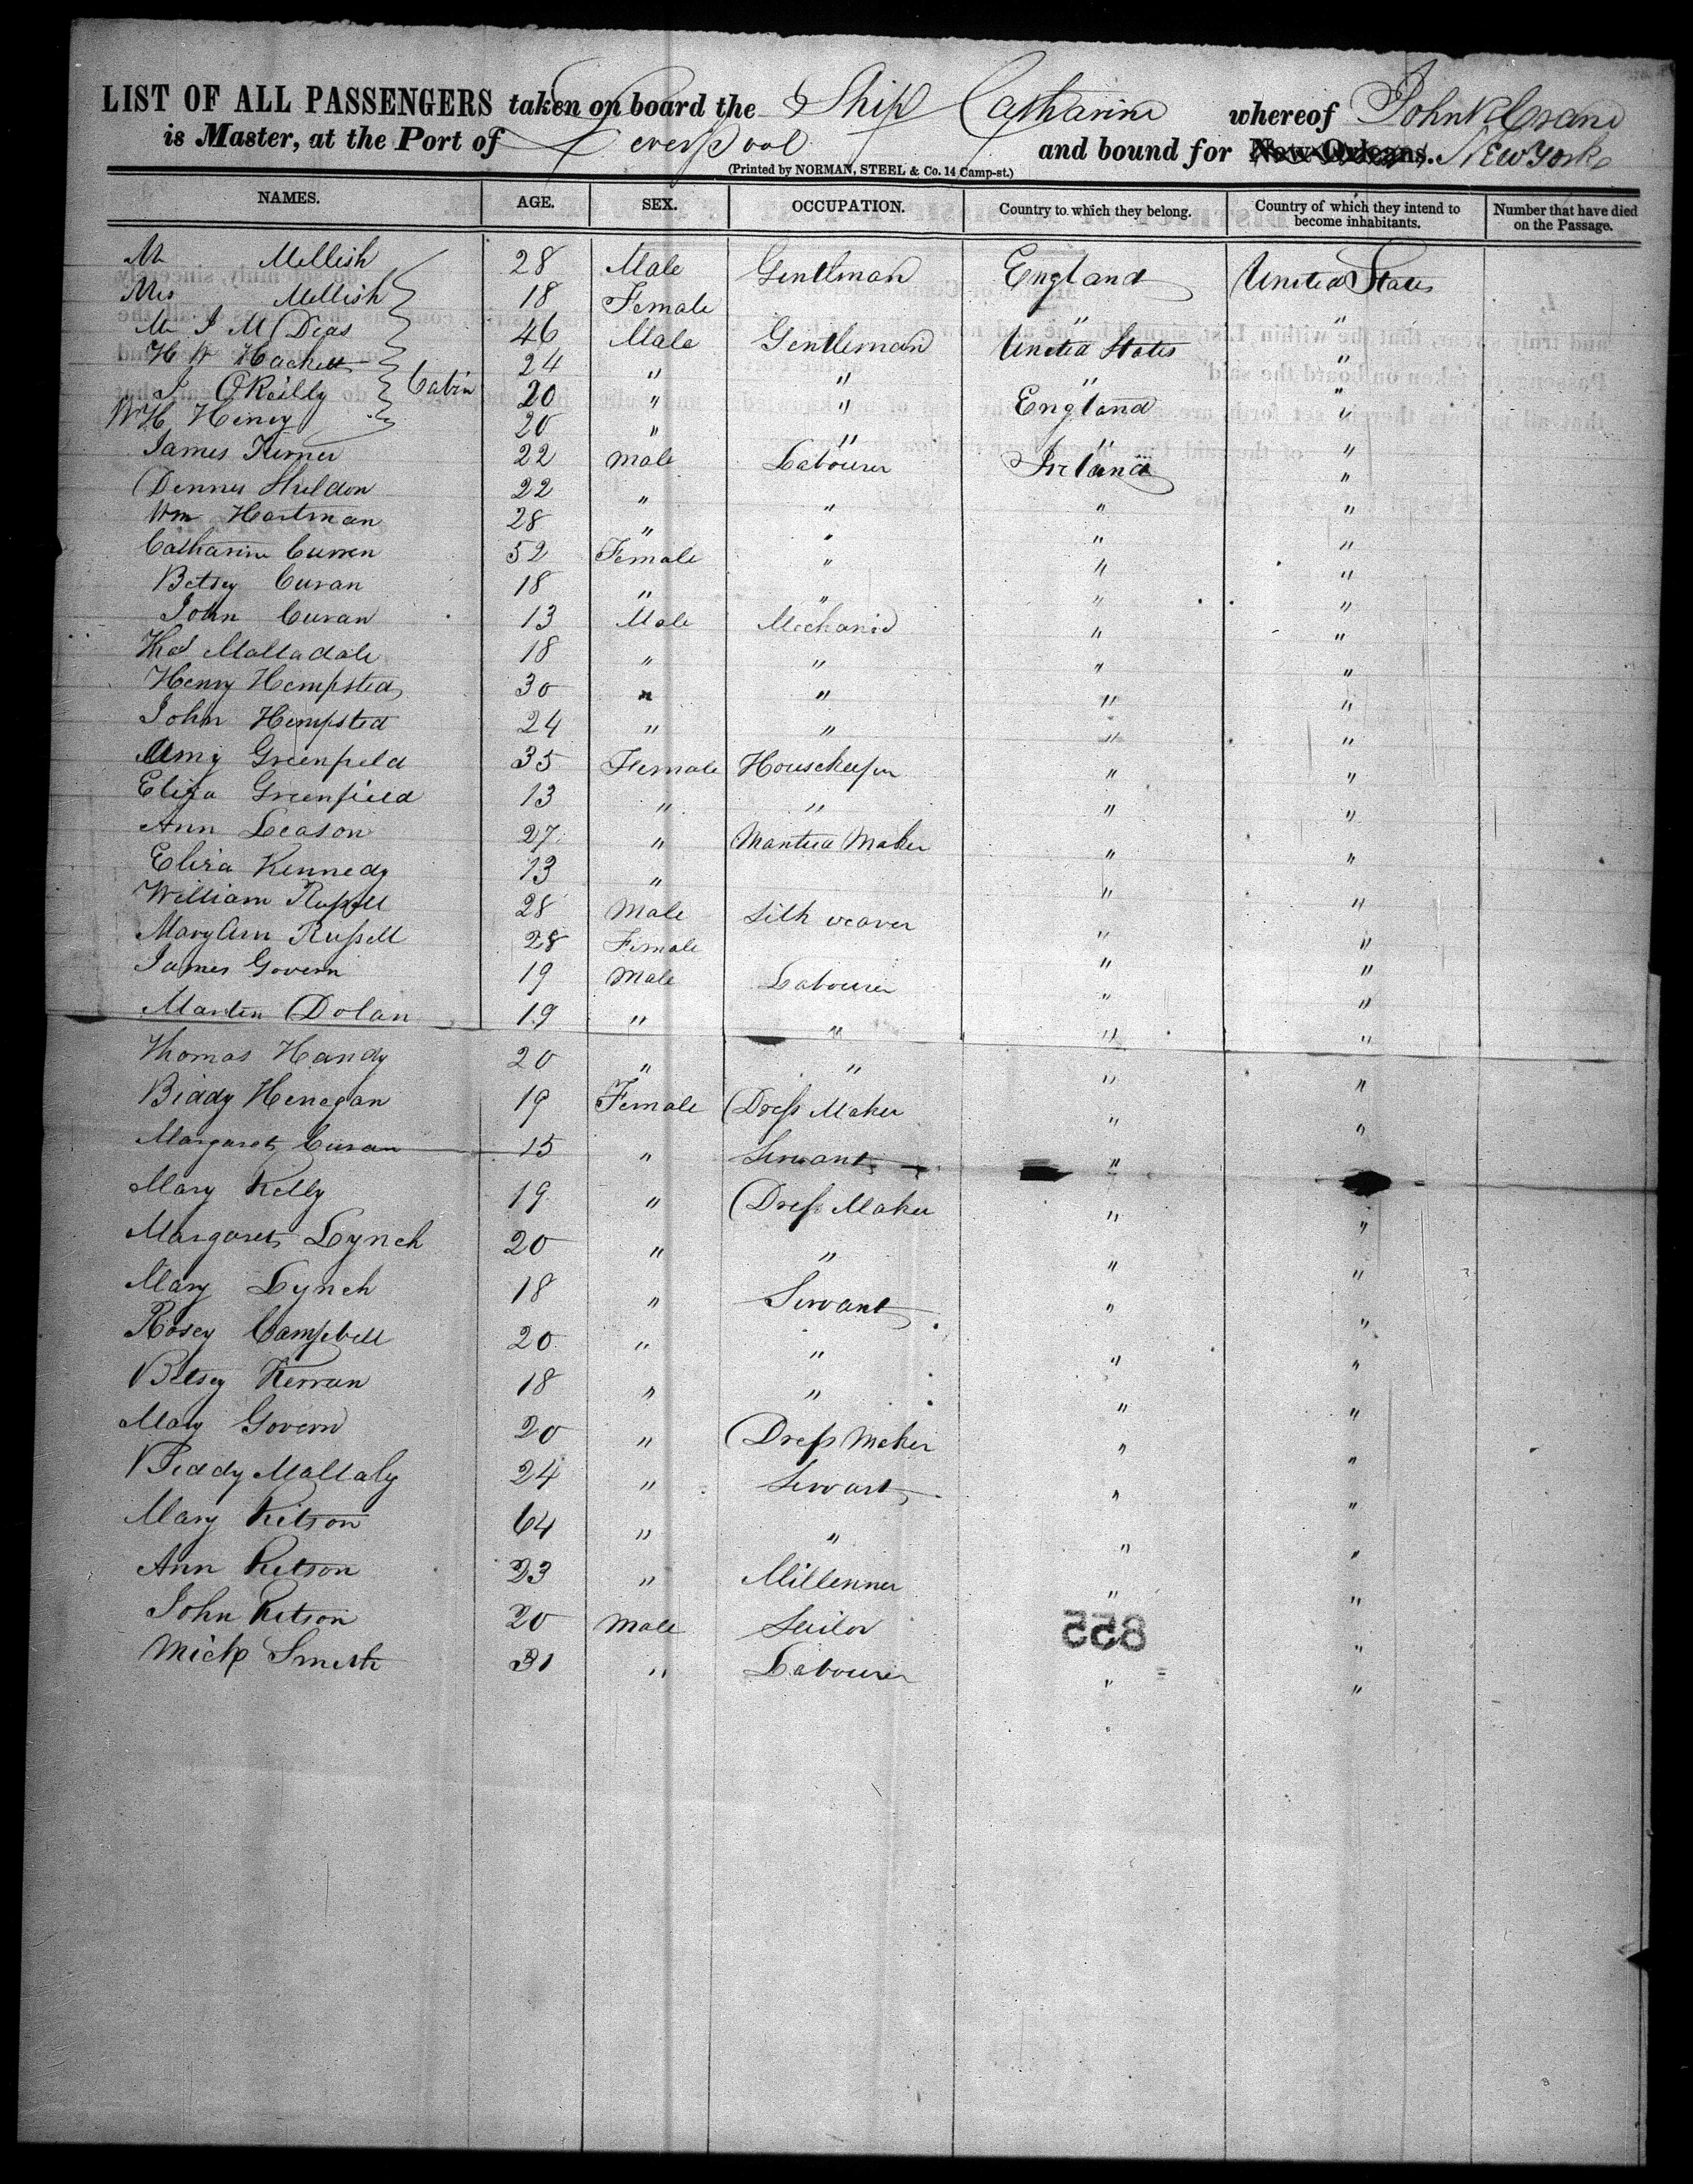 LIST OF ALL PASSENGERS taken on board the Ship Catharine whereof John Crane
is Master, at the Port of Leverpool and bound for New Orleans. New York
(Printed by NORMAN, STEEL & Co. 14 Camp-st.)
NAMES. AGE. SEX. OCCUPATION. Country to which they belong. Country of which they intend to become inhabitants. Number that have died on the Passage.
Mr Mellish 28 Male Gentlman England United States
Mrs Mellish 18 Female " "
Mr I M Deas 46 Male Gentleman United States "
H W Hackett 24 " " " "
J OReilly 20 " " England "
Cabin
WH Heney 20 " " " "
James Kerner 22 Male Labourer Ireland "
Dennis Sheldon 22 " " " "
Wm Hartman 28 " " " "
Catharine Curren 52 Female " " "
Betsey Curan 18 " " " "
John Curan 13 Male Mechanic " "
Thos Malladale 18 " " " "
Henry Hempsted 30 " " " "
John Hempsted 24 " " " "
Amy Greenfield 35 Female Housekeeper " "
Eliza Greenfield 13 " " " "
Ann Leason 27 " Mantua Maker " "
Eliza Kennedy 13 " " "
William Russell 28 Male Silk weaver " "
Mary Ann Russell 28 Female " "
James Govern 19 Male Labourer " "
Martin Dolan 19 " " " "
Thomas Handy 20 " " " "
Biddy Henegan 19 Female Dress Maker " "
Margaret Curan 15 " Servant "
Mary Kelly 19 " Dress Maker " "
Margaret Lynch 20 " " " "
Mary Lynch 18 " Servant " "
Rosey Campbell 20 " " " "
Betsey Kerran 18 " " " "
Mary Govern 20 " Dress Maker " "
Biddy Mallaly 24 " Servant " "
Mary Kitson 64 " " " "
Ann Kitson 23 " Millenner " "
John Kitson 20 Male Sailor "
855
Mick Smith 31 " Labourer " "